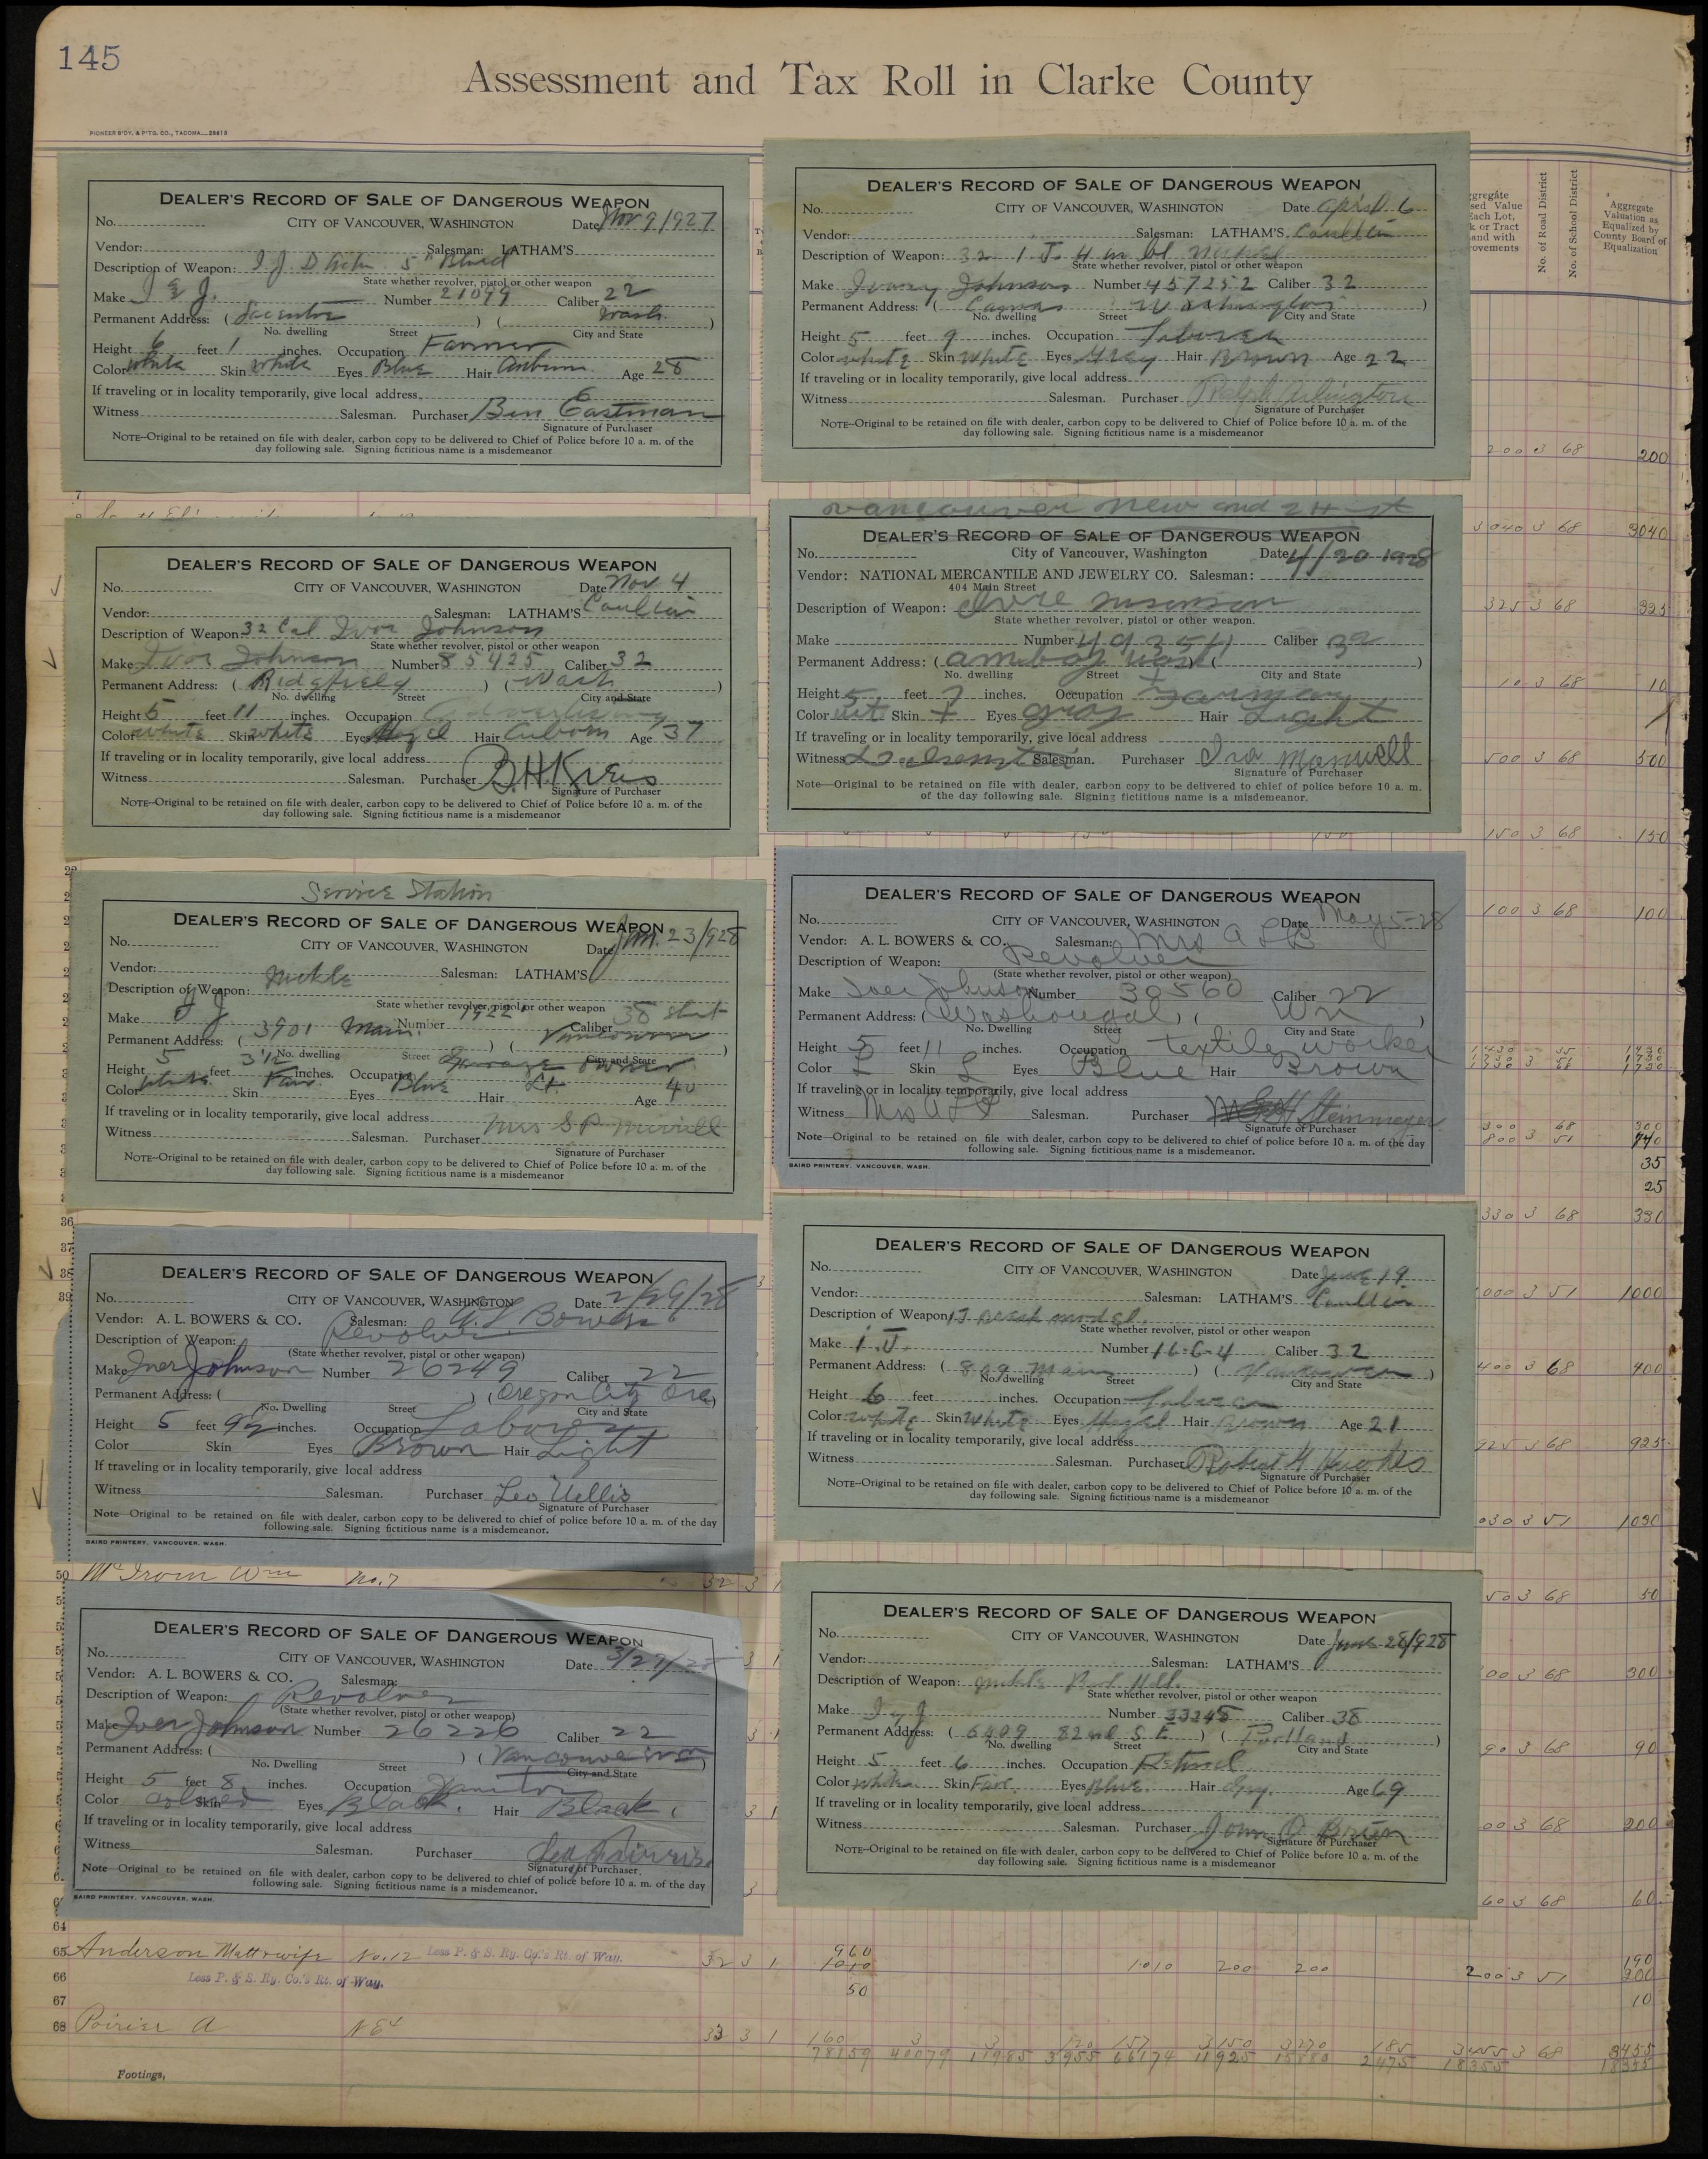 145
Assessment and Tax Roll in Clarke County
PIONEER B'DY. & P'TG. CO., TACOMA—28813
DEALER'S RECORD OF SALE OF DANGEROUS WEAPON
No. CITY OF VANCOUVER, WASHINGTON Date Nov 9/1927
Vendor: Salesman: LATHAM'S
Description of Weapon: I. J. 5" Blued
State whether revolver, pistol or other weapon
Make I & J. Number 21099 Caliber 22
Permanent Address: ( ) ( Wash. )
No. dwelling Street City and State
Height 6 feet 1 inches. Occupation Farmer
Color white Skin White Eyes Blue Hair Auburn Age 28
If traveling or in locality temporarily, give local address
Witness Salesman. Purchaser Ben Eastman
Signature of Purchaser
NOTE—Original to be retained on file with dealer, carbon copy to be delivered to Chief of Police before 10 a. m. of the
day following sale. Signing fictitious name is a misdemeanor
DEALER'S RECORD OF SALE OF DANGEROUS WEAPON
No. CITY OF VANCOUVER, WASHINGTON Date Nov 4
Vendor: Salesman: LATHAM'S
Description of Weapon 32 Cal Ivor Johnson
State whether revolver, pistol or other weapon
Make Ivor Johnson Number 85425 Caliber 32
Permanent Address: ( Ridgfield ) ( Wash )
No. dwelling Street City and State
Height 5 feet 11 inches. Occupation
Color white Skin white Eyes Hazel Hair Auborn Age 37
If traveling or in locality temporarily, give local address
Witness Salesman. Purchaser B.H. Kreis
Signature of Purchaser
NOTE—Original to be retained on file with dealer, carbon copy to be delivered to Chief of Police before 10 a. m. of the
day following sale. Signing fictitious name is a misdemeanor
Service Station
DEALER'S RECORD OF SALE OF DANGEROUS WEAPON
No. CITY OF VANCOUVER, WASHINGTON Date Jan. 23/928
Vendor: Salesman: LATHAM'S
Description of Weapon: Nickle
State whether revolver, pistol or other weapon
Make I J Number 1922 Caliber 38 Short
Permanent Address: ( 3901 Main. ) ( Vancouver )
No. dwelling Street City and State
Height 5 feet 3½ inches. Occupation Garage owner
Color White Skin Fair. Eyes Blue Hair Lt. Age 40
If traveling or in locality temporarily, give local address
Witness Salesman. Purchaser Mrs S P Mirrill
Signature of Purchaser
NOTE—Original to be retained on file with dealer, carbon copy to be delivered to Chief of Police before 10 a. m. of the
day following sale. Signing fictitious name is a misdemeanor
DEALER'S RECORD OF SALE OF DANGEROUS WEAPON
No. CITY OF VANCOUVER, WASHINGTON Date 2/29/28
Vendor: A. L. BOWERS & CO. Salesman: A L Bowers
Description of Weapon: Revolver
(State whether revolver, pistol or other weapon)
Make Iver Johnson Number 26249 Caliber 22
Permanent Address: ( ) ( Oregon City Ore )
No. Dwelling Street City and State
Height 5 feet 9½ inches. Occupation Laborer
Color Skin Eyes Brown Hair Light
If traveling or in locality temporarily, give local address
Witness Salesman. Purchaser Leo
Signature of Purchaser
Note—Original to be retained on file with dealer, carbon copy to be delivered to chief of police before 10 a. m. of the day
following sale. Signing fictitious name is a misdemeanor.
BAIRD PRINTERY, VANCOUVER, WASH.
50 McIrvin Wm No. 7 32 3 1
DEALER'S RECORD OF SALE OF DANGEROUS WEAPON
No. CITY OF VANCOUVER, WASHINGTON Date 3/27/28
Vendor: A. L. BOWERS & CO. Salesman:
Description of Weapon: Revolver
(State whether revolver, pistol or other weapon)
Make Iver Johnson Number 26226 Caliber 22
Permanent Address: ( ) ( Vancouver )
No. Dwelling Street City and State
Height 5 feet 8 inches. Occupation Janitor
Color Colored Skin Eyes Black. Hair Black.
If traveling or in locality temporarily, give local address
Witness Salesman. Purchaser
Signature of Purchaser
Note—Original to be retained on file with dealer, carbon copy to be delivered to chief of police before 10 a. m. of the day
following sale. Signing fictitious name is a misdemeanor.
BAIRD PRINTERY, VANCOUVER, WASH.
DEALER'S RECORD OF SALE OF DANGEROUS WEAPON
No. CITY OF VANCOUVER, WASHINGTON Date April 6
Vendor: Salesman: LATHAM'S
Description of Weapon: 32 I J 4 in bl
State whether revolver, pistol or other weapon
Make Johnson Number 457252 Caliber 32
Permanent Address: ( Camas Washington )
No. dwelling Street City and State
Height 5 feet 9 inches. Occupation Laborer
Color white Skin white Eyes Gray Hair Brown Age 22
If traveling or in locality temporarily, give local address
Witness Salesman. Purchaser Ralph Arlington
Signature of Purchaser
NOTE—Original to be retained on file with dealer, carbon copy to be delivered to Chief of Police before 10 a. m. of the
day following sale. Signing fictitious name is a misdemeanor
vancouver new and 2
DEALER'S RECORD OF SALE OF DANGEROUS WEAPON
No. City of Vancouver, Washington Date 4/20 1928
Vendor: NATIONAL MERCANTILE AND JEWELRY CO. Salesman:
404 Main Street
Description of Weapon:
State whether revolver, pistol or other weapon.
Make Number Caliber 32
Permanent Address: ( amboy wash ) ( )
No. dwelling Street City and State
Height 5 feet 7 inches. Occupation
Color Skin Eyes gray Hair Light
If traveling or in locality temporarily, give local address
Witness Salesman. Purchaser Ira Maxwell
Signature of Purchaser
Note—Original to be retained on file with dealer, carbon copy to be delivered to chief of police before 10 a. m.
of the day following sale. Signing fictitious name is a misdemeanor.
DEALER'S RECORD OF SALE OF DANGEROUS WEAPON
No. CITY OF VANCOUVER, WASHINGTON Date May 5-28
Vendor: A. L. BOWERS & CO. Salesman: Mrs A L B
Description of Weapon: Revolver
(State whether revolver, pistol or other weapon)
Make Iver Johnson Number 30560 Caliber 22
Permanent Address: ( Washougal ) ( Wn )
No. Dwelling Street City and State
Height 5 feet 11 inches. Occupation textile worker
Color L Skin L Eyes Blue Hair Brown
If traveling or in locality temporarily, give local address
Witness Mrs A L B Salesman. Purchaser Steinmeyer
Signature of Purchaser
Note—Original to be retained on file with dealer, carbon copy to be delivered to chief of police before 10 a. m. of the day
following sale. Signing fictitious name is a misdemeanor.
BAIRD PRINTERY, VANCOUVER, WASH.
DEALER'S RECORD OF SALE OF DANGEROUS WEAPON
No. CITY OF VANCOUVER, WASHINGTON Date June 19
Vendor: Salesman: LATHAM'S
Description of Weapon IJ model.
State whether revolver, pistol or other weapon
Make I.J. Number 16-6-4 Caliber 32
Permanent Address: ( 809 Main ) ( Vancouver )
No. dwelling Street City and State
Height 6 feet inches. Occupation Laborer
Color white Skin White Eyes Hazel Hair Brown Age 21
If traveling or in locality temporarily, give local address
Witness Salesman. Purchaser Robert H Hughes
Signature of Purchaser
NOTE—Original to be retained on file with dealer, carbon copy to be delivered to Chief of Police before 10 a. m. of the
day following sale. Signing fictitious name is a misdemeanor
DEALER'S RECORD OF SALE OF DANGEROUS WEAPON
No. CITY OF VANCOUVER, WASHINGTON Date June 28/928
Vendor: Salesman: LATHAM'S
Description of Weapon:
State whether revolver, pistol or other weapon
Make I J Number 33248 Caliber 38
Permanent Address: ( 6409 82nd S E ) ( Portland )
No. dwelling Street City and State
Height 5 feet 6 inches. Occupation Retired
Color White Skin Fair. Eyes Blue. Hair Gry. Age 69
If traveling or in locality temporarily, give local address
Witness Salesman. Purchaser John O Brien
Signature of Purchaser
NOTE—Original to be retained on file with dealer, carbon copy to be delivered to Chief of Police before 10 a. m. of the
day following sale. Signing fictitious name is a misdemeanor
No. of Road District
No. of School District
Aggregate
Valuation as
Equalized by
County Board of
Equalization
200 3 68 200
3040 3 68 3040
325 3 68 325
10 3 68 10
500 3 68 500
150 3 68 150
100 3 68 100
35
25
330 3 68 330
000 3 51 1000
400 3 68 400
925 3 68 925
030 3 51 1030
50 3 68 50
00 3 68 300
90 3 68 90
00 3 68 200
60 3 68 60
64
65 Anderson Matt & wife No. 12 Less P. & S. Ry. Co.'s Rt. of Way. 32 3 1 960 1010 1010 200 200 200 3 51 190 200
66 Less P. & S. Ry. Co.'s Rt. of Way. 50 10
67
68 Poirier A NE4 33 3 1 160 3 3 120 157 3150 3270 185 3455 3 68 3455
Footings,